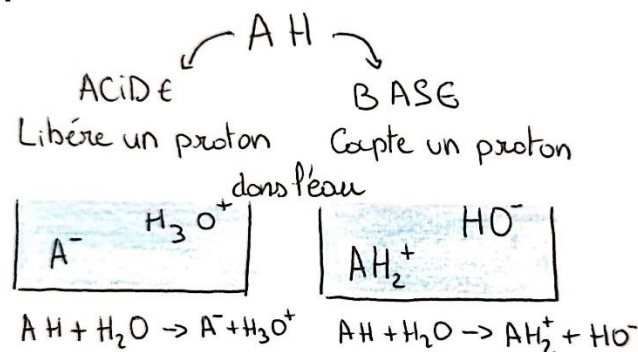 AH
ACiDE
BASE
Libére un proton
Capte un proton
dans l'eau
A⁻ H₃O⁺
AH₂⁺ HO⁻
AH + H₂O → A⁻ + H₃O⁺
AH + H₂O → AH₂⁺ + HO⁻